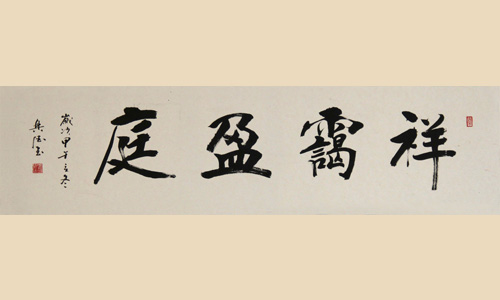 祥靄盈庭
歲次甲午之冬